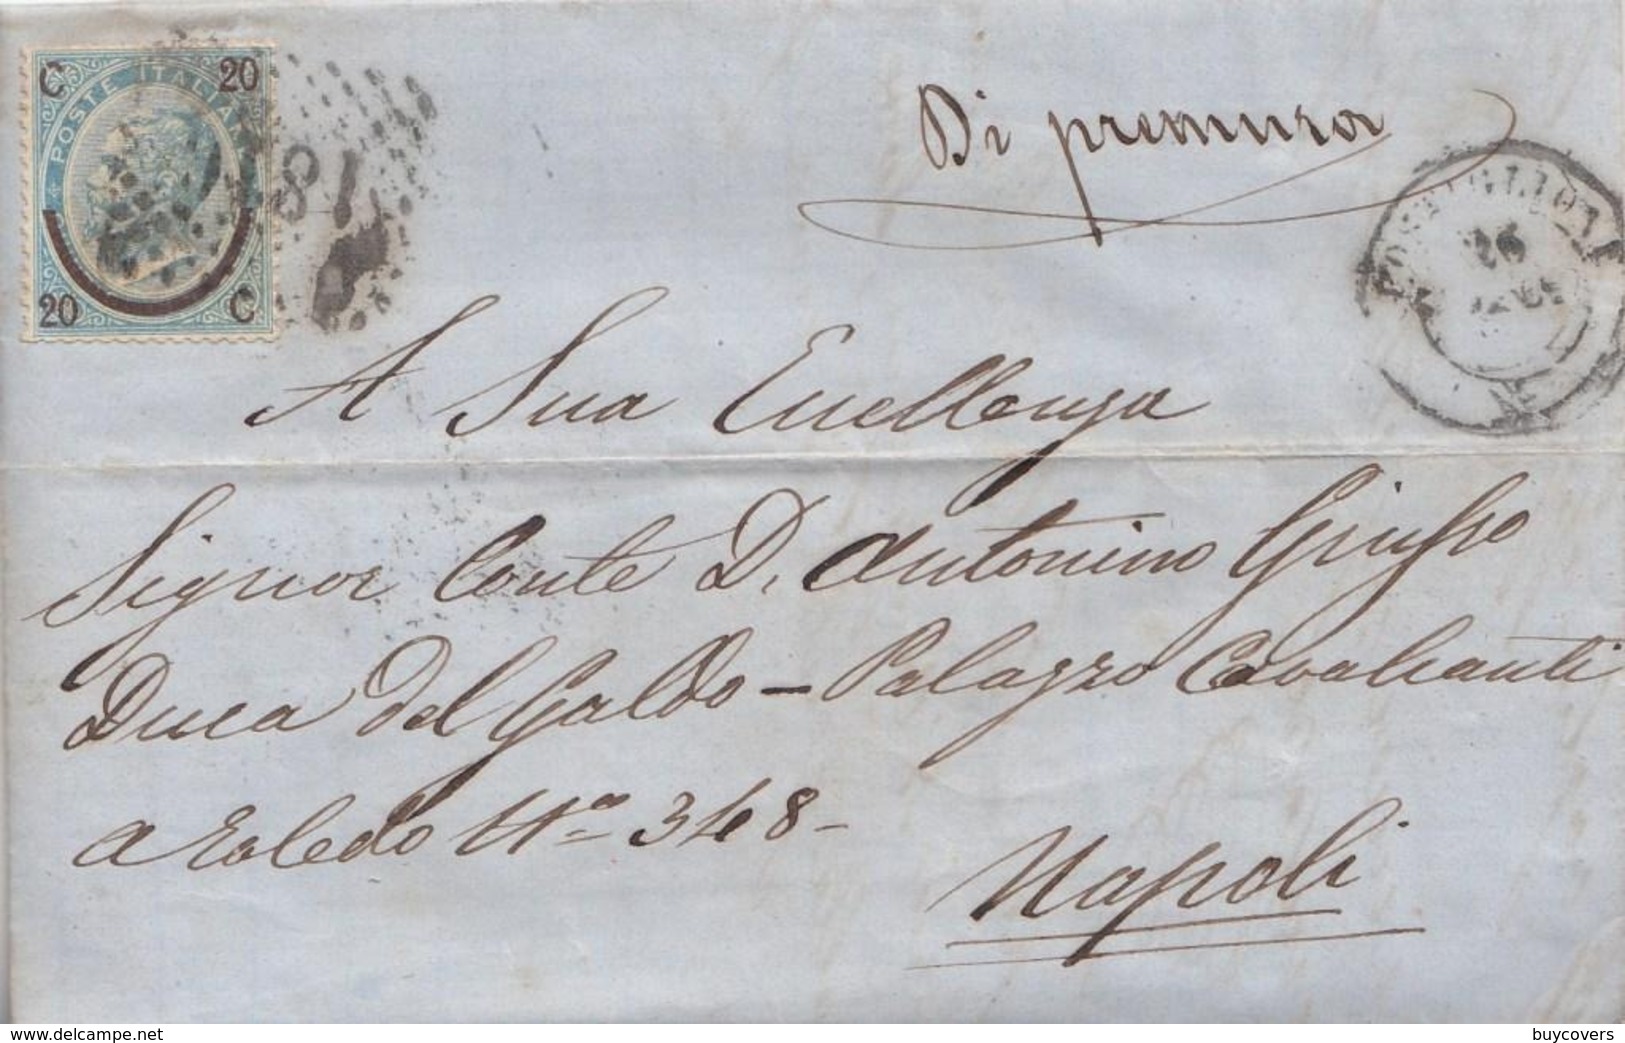 C 20
POSTE ITALIANE
20 C
181
Di premura
26
A Sua Eccellenza
Signor Conte D. Antonino Griffeo
Duca del Galdo - Palazzo Cavalcanti
a Toledo No 348-
Napoli
www.delcampe.net
buycovers